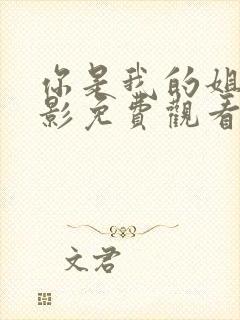 你是我的姐
影免費觀看
文君